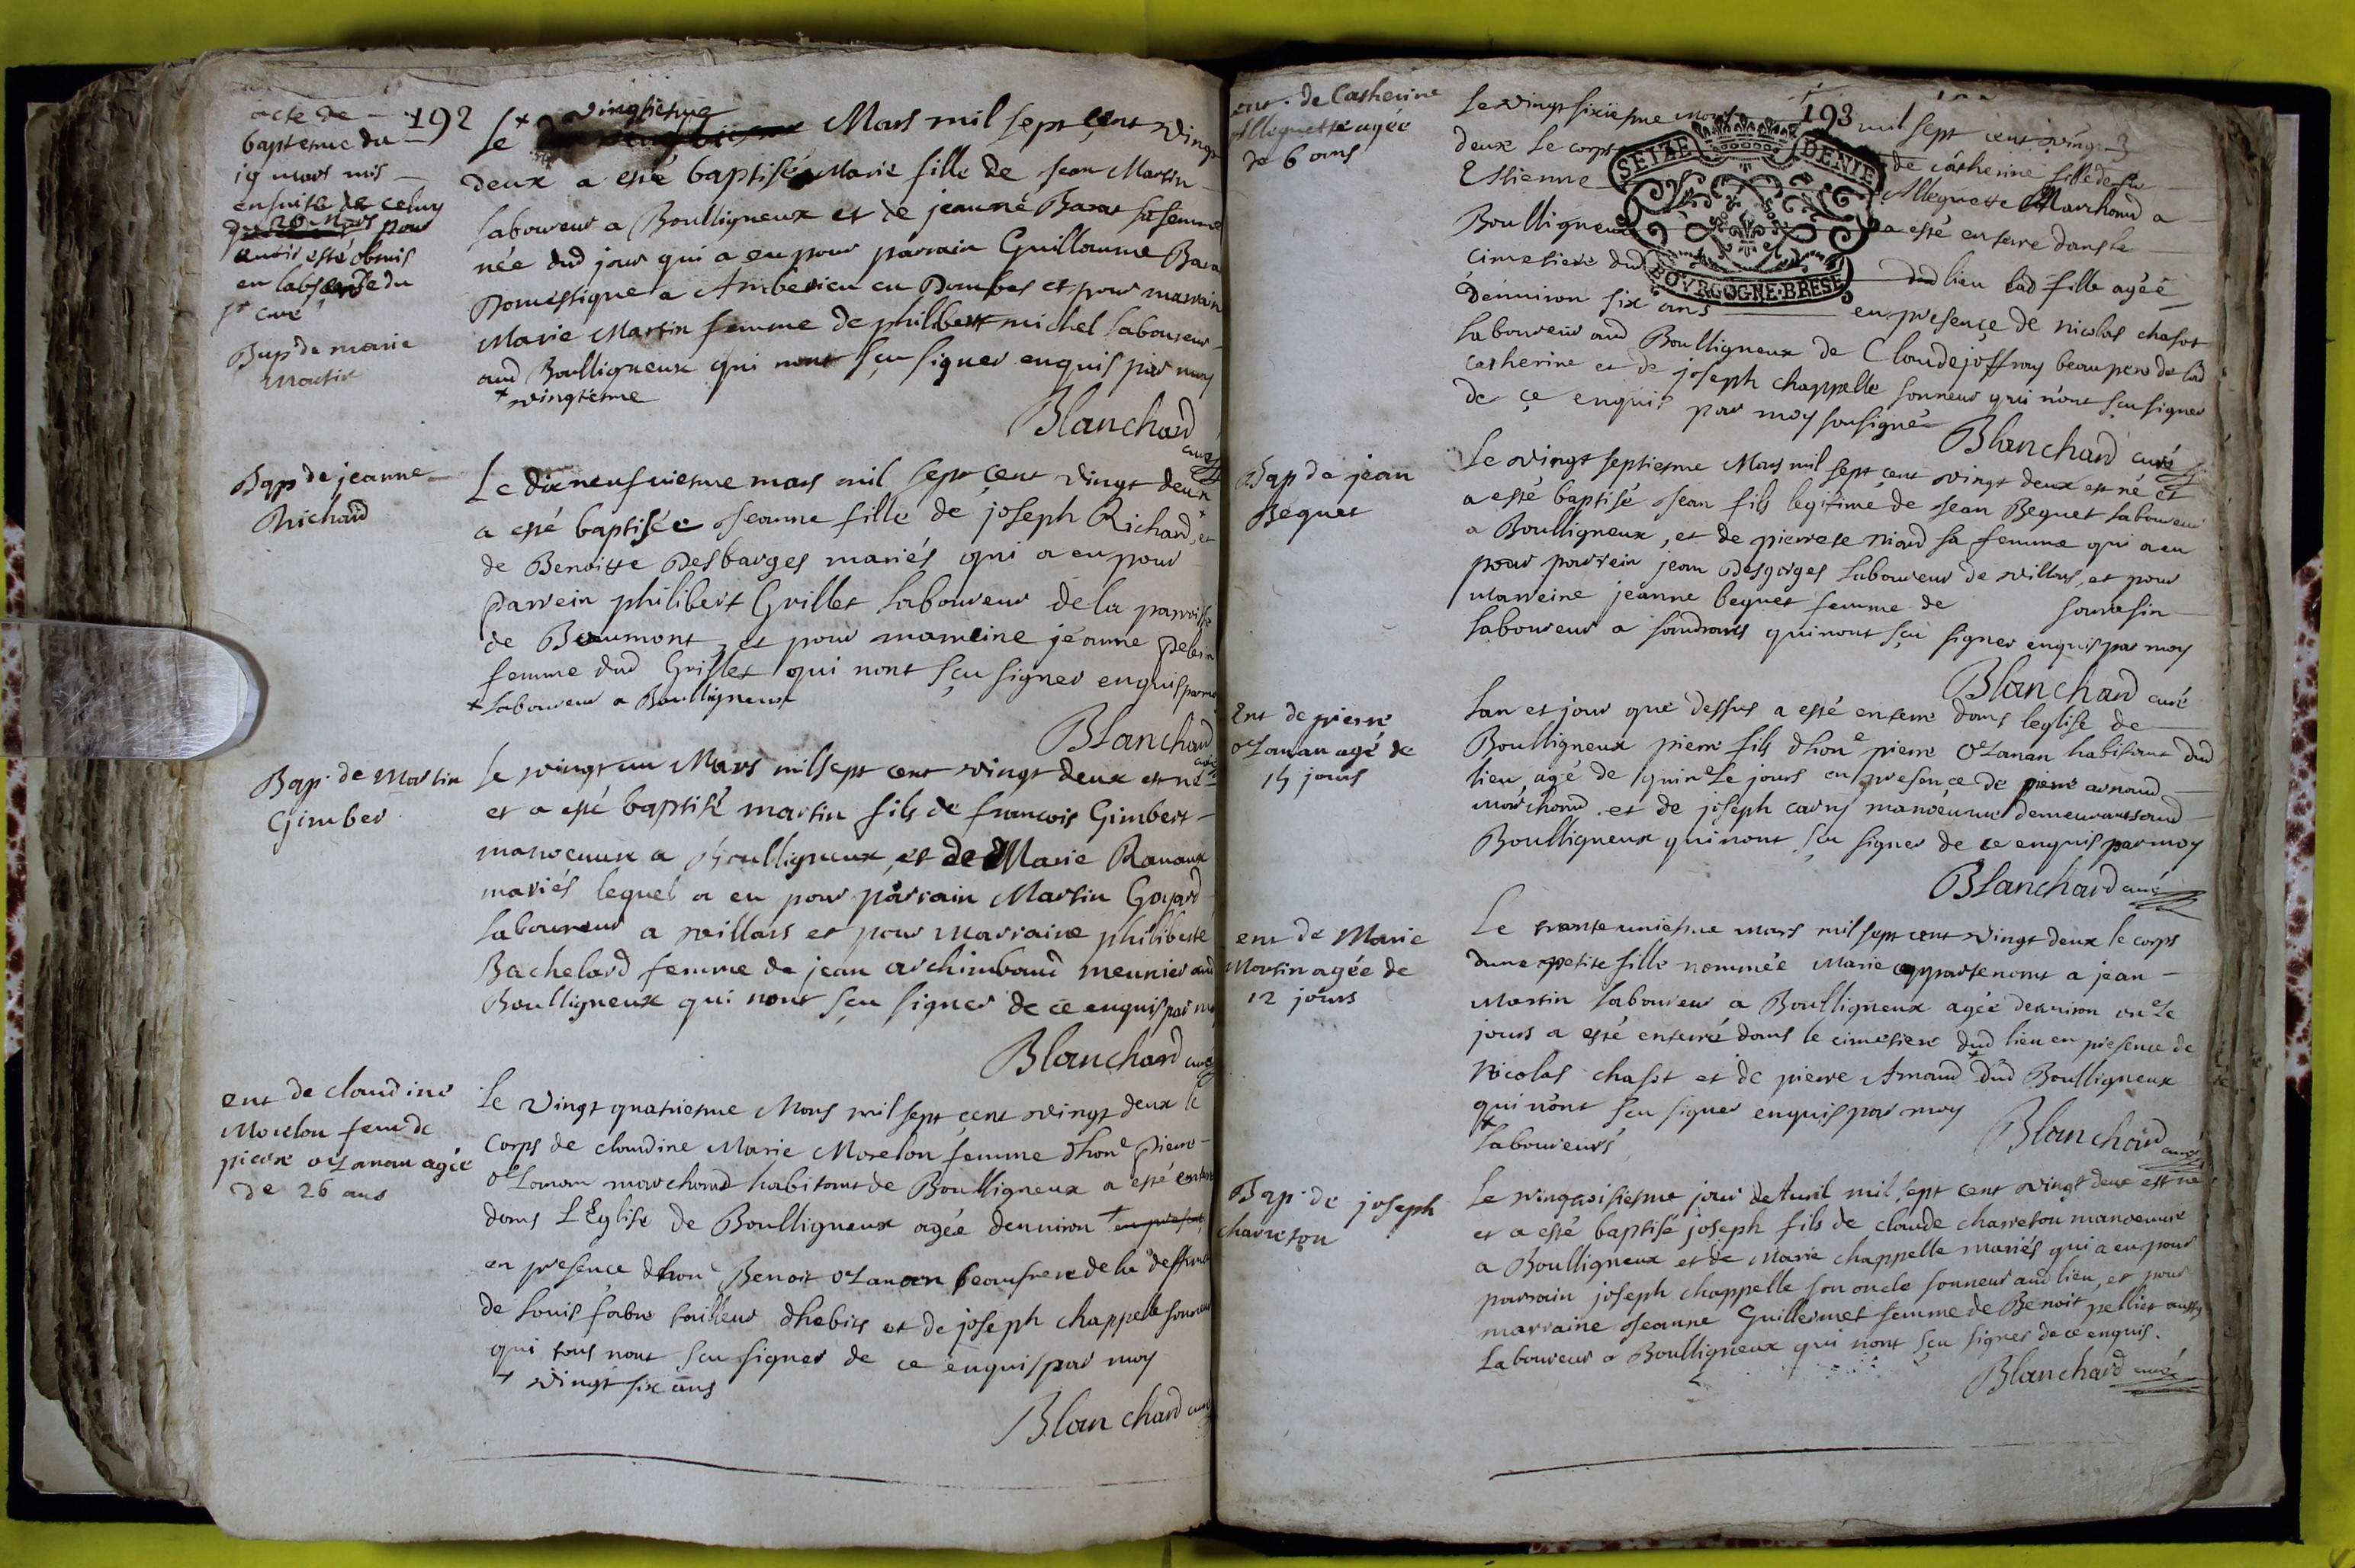 acte de
192
baptesme du
19 mars mis
ensuite de celuy
du 20 mars pour
avoir esté obmis
en labscence du
sr curé
Bap de marie
Martin
Le + vingtiesme Mars mil sept çent vingt
deux a esté baptisé Marie fille de Jean Martin
laboureur a Boulligneux et de jeanne Barat sa femme
née dud jour qui a eu pour parrain Guillaume Bara
Domestique a Amberieu en Dombes et pour marrain
Marie Martin femme de philibert michel laboureur
aud Boulligneux qui nont sçu signer enquis par moy
+ vingtiéme
Blanchard
curé
Bap de jeanne
Richard
Le dixneufviesme mars mil sept çent vingt deux
a esté baptisée Jeanne fille de joseph Richard + et
de Benoitte Desbarges mariés qui a eu pour
parrein philibert Grillet laboureur de la parroisse
de Beaumont, et pour marreine jeanne pelerin
femme dud Grillet qui nont sçu signer enquis par moy
+ laboureur a Boulligneux
Blanchard
curé
Bap. de Martin
Gimber
Le vingt un Mars mil sept cent vingt deux est né
et a esté baptisé martin fils de francois Gimbert
manoeuure a Boulligneux, et de Marie Ranaux
mariés lequel a eu pour parrain Martin Goyard
laboureur a villars et pour Marraine philiberte
Bachelard femme de jean archimbaud meunier aud
Boulligneux qui nont sçu signer de ce enquis par moy
Blanchard curé
ent de claudine
Morelon fem de
pierre ozanan agée
de 26 ans
Le vingt quatriesme Mars mil sept çent vingt deux le
corps de claudine Marie Morelon femme dhone pierre
ozanan marchand habitant de Boulligneux a esté enterré
dans L'Eglise de Boulligneux agée denuiron + en presen
en presençe dhone Benoit ozanan beaufrere de la deffunte
de Louis fabre tailleur dhabits et de joseph chappelle sonneur
qui tous nont sçu signer de ce enquis par moy
+ vingt six ans
Blanchard curé
ent. de Catherine
Alleguette agée
de 6 ans
193
Le vingt sixiesme mars mil sept cent vingt
deux le corps de catherine fille de feu
Estienne Alleguette Marchand a
Boulligneux a esté enterre dans le
cimetiere dud dud lieu lad fille agée
denuiron six ans en presençe de nicolas chasot
laboureur aud Boulligneux de Claude joffray beaupere de lad
catherine et de joseph chappelle sonneur qui n'ont sçu signer
de çe enquis par moy sousigné
Blanchard curé
SEIZE DENIE
BOVRGOGNE·BRESSE
Bap de jean
Bequet
Le vingt septiesme Mars mil sept çent vingt deux est né et
a esté baptisé Jean fils legitime de Jean Bequet laboureur
a Boulligneux, et de pierrete niard sa femme qui a eu
pour parrein jean Desgorges laboureur de villars, et pour
marreine jeanne bequet femme de sarrasin
laboureur a sandrans qui nont sçu signer enquis par moy
Blanchard curé
Ent de pierre
ozanan agé de
15 jours
Lan et jour que dessus a esté enterre dans leglise de
Boulligneux pierre fils dhone pierre ozanan habitant dud
lieu, agé de quinze jours en presençe de pierre arnaud
marchand et de joseph carry manoeuure demeurants aud
Boulligneux qui nont sçu signer de ce enquis par moy
Blanchard curé
ent de Marie
Martin agée de
12 jours
Le trente uniesme mars mil sept cent vingt deux le corps
dune petite fille nommée Marie appartenant a jean
Martin laboureur a Boulligneux agée denuiron onze
jours a esté enterré dans le cimetiere dud lieu en presence de
Nicolas chasot et de pierre Arnaud + dud Boulligneux
qui n'ont sçu signer enquis par moy
+ laboureurs
Blanchard curé
Bap. de joseph
charreton
Le jour de Avril mil sept cent vingt deux est né
et a esté baptisé joseph fils de claude charreton manoeuure
a Boulligneux et de Marie chappelle mariés qui a eu pour
parrain joseph chappelle son oncle sonneur aud lieu, et pour
marraine Jeanne Guillermet femme de Benoit pellier aussy
Laboureur a Boulligneux qui nont sçu signer de ce enquis.
Blanchard curé